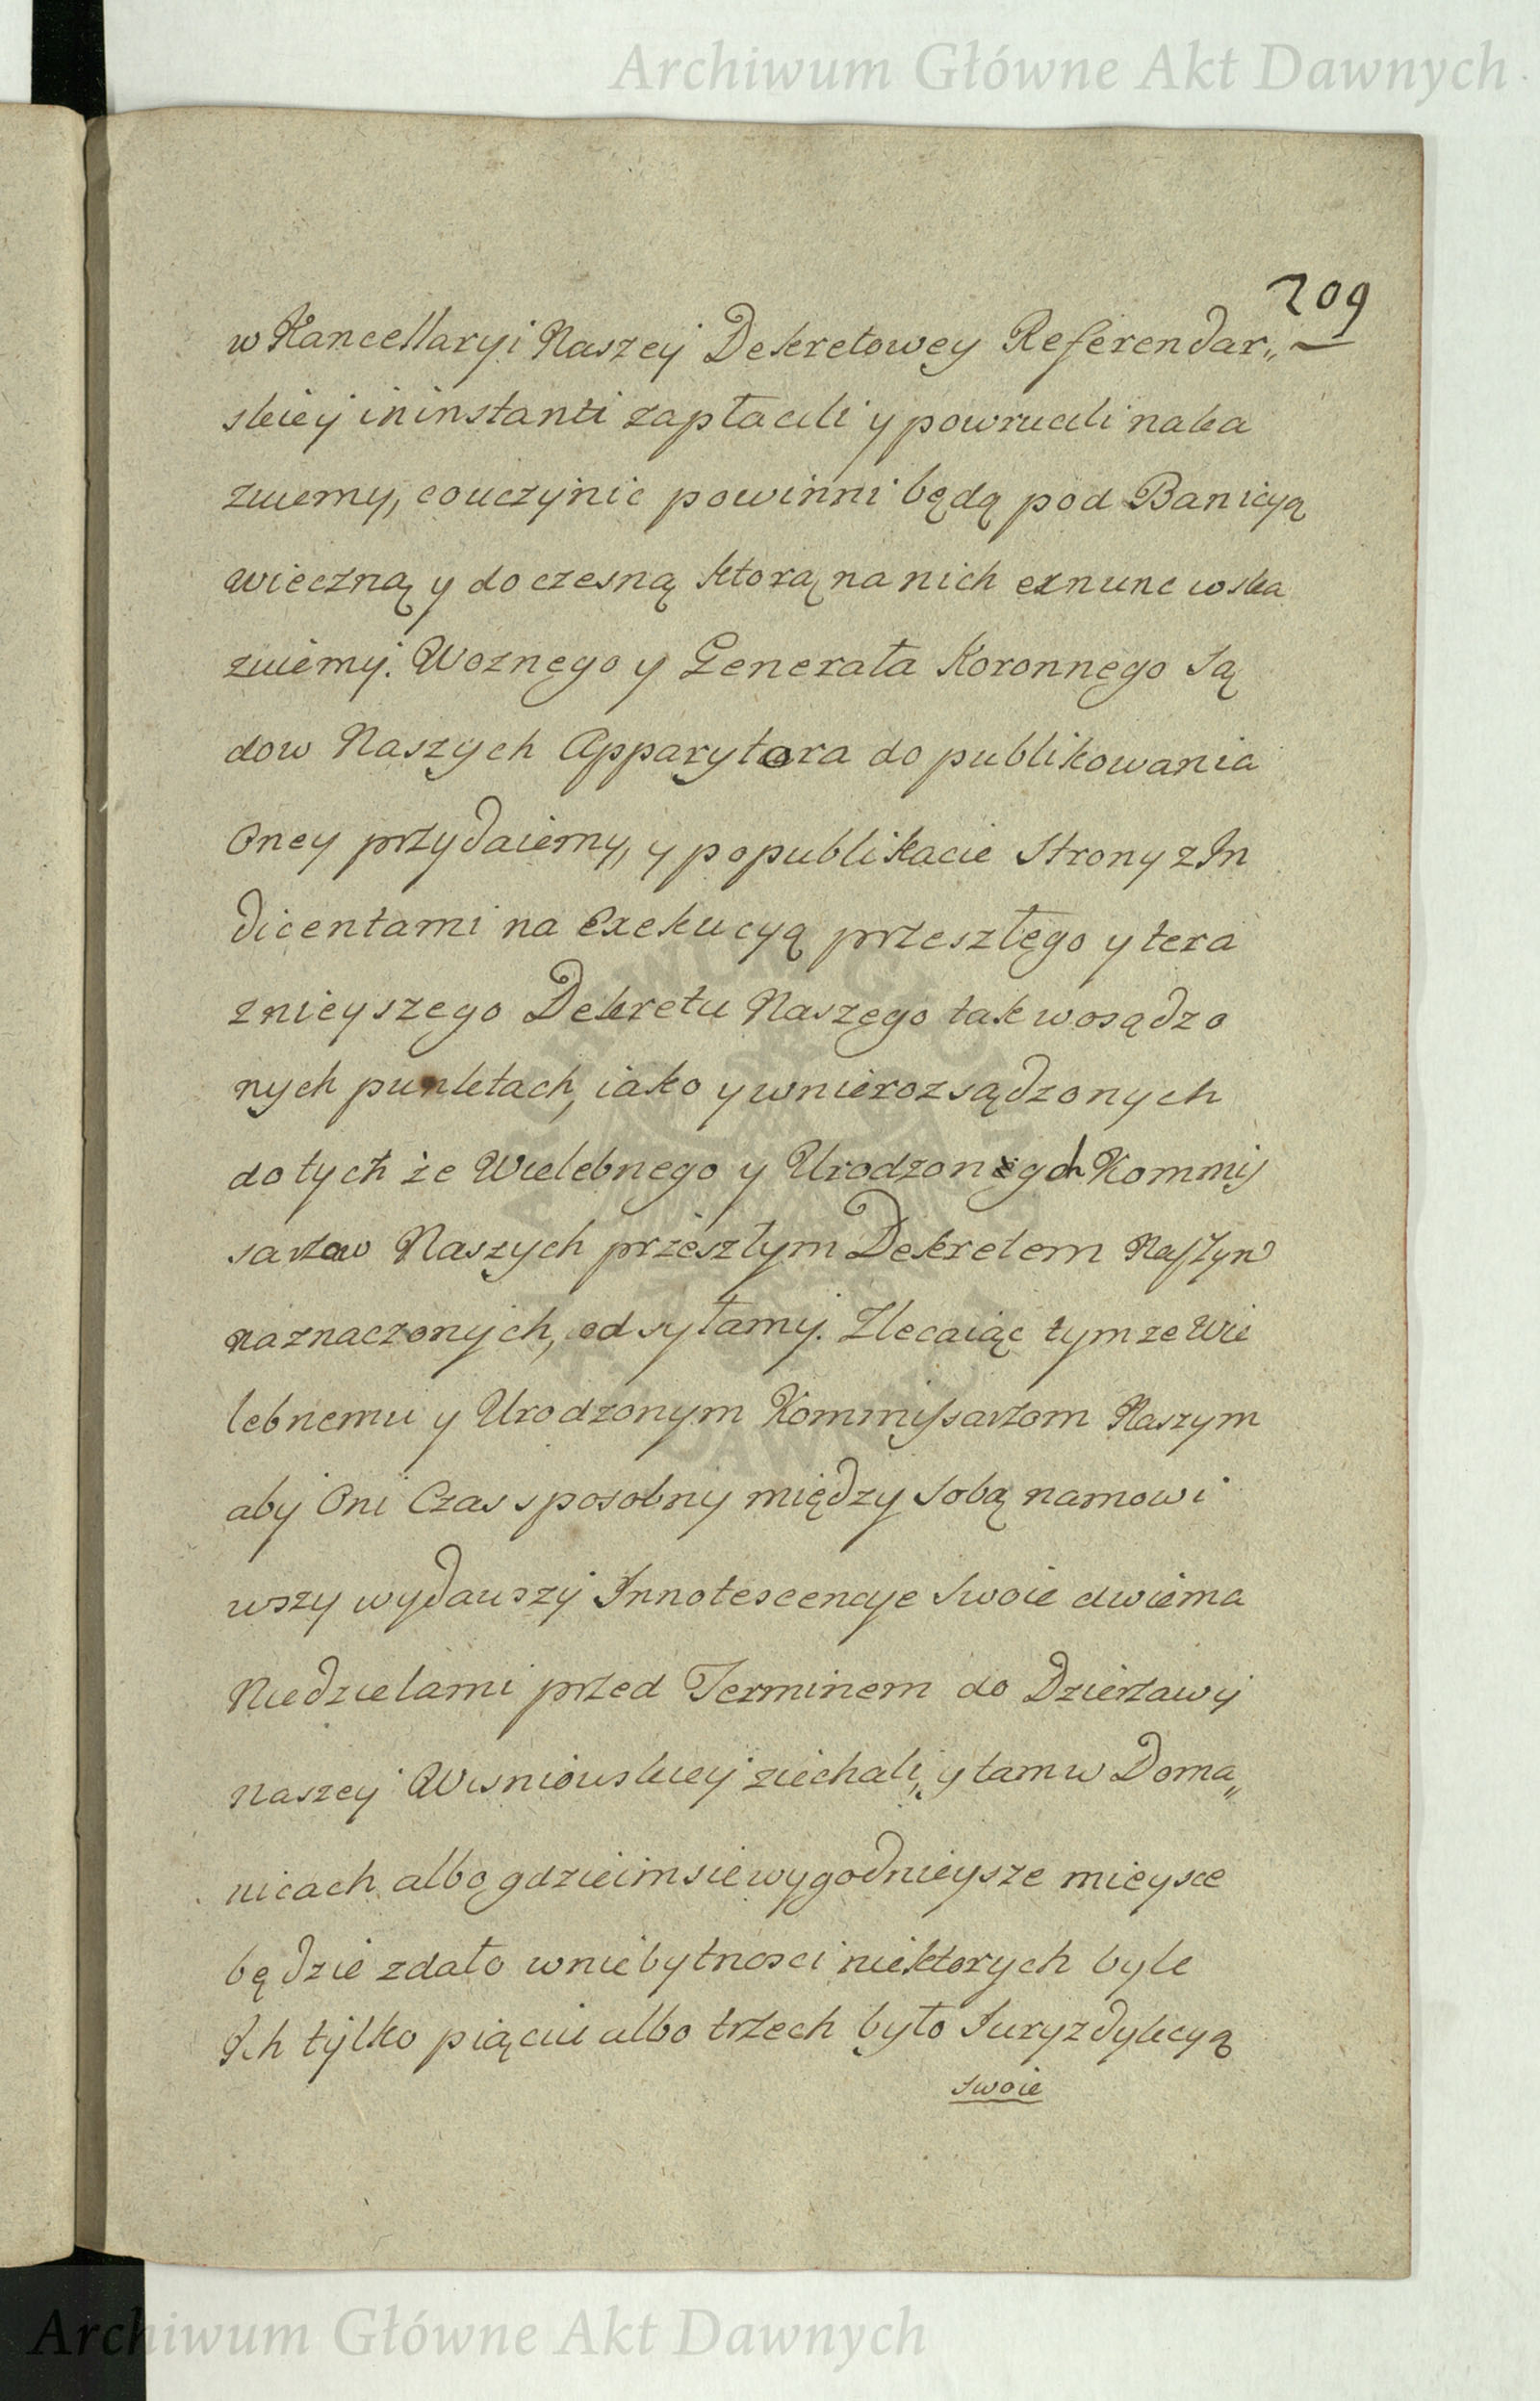 Archiwum Główne Akt Dawnych
209
w Kancellaryi Naszey Dekretowey Referendar„
skiey in instanti zapłacili y powrucili naka
zuiemy, co uczynic powinni będą pod Banicyą
wieczną y doczesną ktorą na nich ex nunc wska
zuiemy. Woznego y Generała Koronnego Są
dow Naszych Apparytora do publikowania
Oney przydaiemy, y po publikacie Strony z In
dicentami na Exekucyą przeszłego y tera
znieyszego Dekretu Naszego tak w osądzo
nych punktach, iako y w nierozsądzonych
do tych że Wielebnego y Urodzonych Kommis
sarzow Naszych przeszłym Dekretem Naszym
naznaczonych, odsyłamy. Zlecaiąc tymze Wie
lebnemu y Urodzonym Kommissarzom Naszym
aby Oni Czas sposobny między sobą namowi
wszy wydawszy Innotescencye Swoie dwiema
Niedzielami przed Terminem do Dzierzawy
naszey Wisniowskiey ziechali, y tam w Doma„
nicach albo gdzie im sie wygodnieysze mieysce
będzie zdało w niebytnosci niektorych byle
Ich tylko pięciu albo trzech było Juryzdykcyą
swoie
Archiwum Główne Akt Dawnych